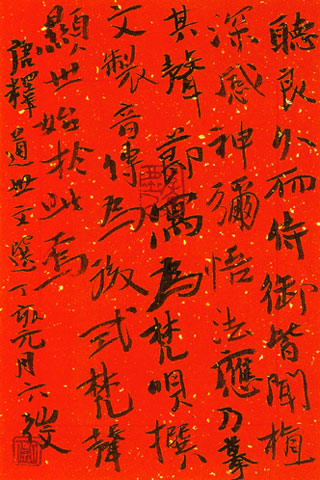 聽良久而侍御皆聞植
深感神彌悟法應乃摹
其聲節寫為梵唄撰
文製音傳為後式梵聲
顯世始於此焉
唐釋道世文選丁亥元月六